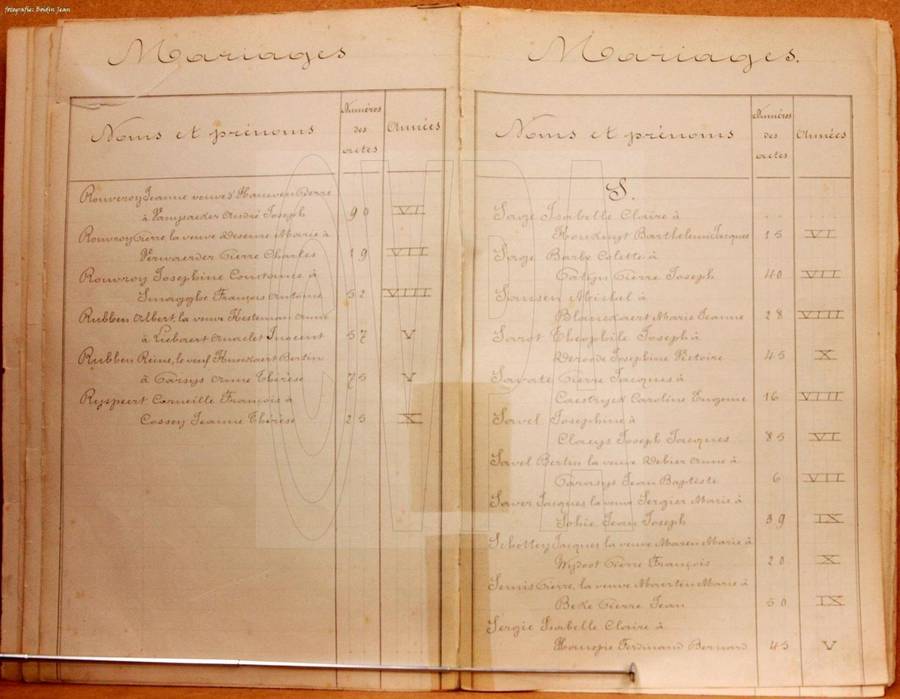 fotografie: Boidin Jean
Mariages
Noms et prénoms
Numéros
des
actes
Années
Rouveroy Jeanne veuve d'
à André Joseph 90 VI
Rouvroy Pierre, la veuve Deseure Marie à
Verwaerder Pierre Charles 19 VII
Rouvroy Josephine Constance à
Smagghe François Antoine 52 VIII
Rubben Albert, la veuve Kesteman Anne
à Liebaert Anaclet Inocent 57 V
Rubben Reine, le veuf Bertin
à Carsys Anne Thérèse 75 V
Ryspeert Corneille François à
Cossey Jeanne Thérèse 25 X
Mariages.
Noms et prénoms
Numéros
des
actes
Années
S.
Sage Isabelle Claire à
Barthelemi Jacques 15 VI
Sage Barbe Colette à
Pierre Joseph 40 VII
Sansen Michel à
Blanckaert Marie Jeanne 28 VIII
Sarot Théophile Joseph à
Deronde Josephine Victoire 45 X
Savate Pierre Jacques à
Caestryck Caroline Eugenie 16 VIII
Savel Josephine à
Claeys Joseph Jacques 85 VI
Savel Bertin la veuve Debier Anne à
Jean Baptiste 6 VII
Saver Jacques la veuve Sergier Marie à
Sohie Jean Joseph 39 IX
Schottey Jacques la veuve Masen Marie à
Wydoot Pierre François 20 X
Semis Pierre, la veuve Maerten Marie à
Beke Pierre Jean 50 IX
Sergie Isabelle Claire à
Ferdinand Bernard 45 V